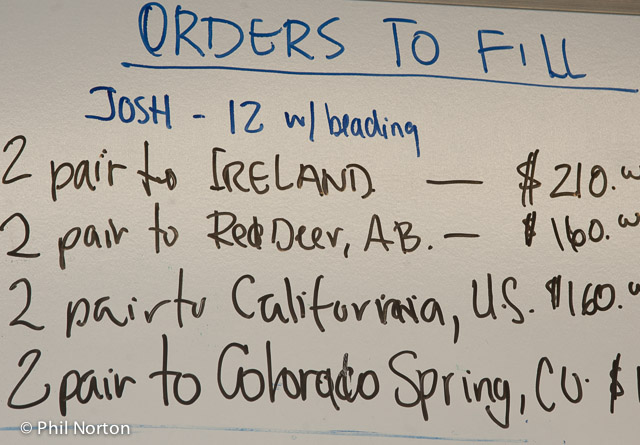 ORDERS TO FILL
JOSH - 12 w/ beading
2 pair to IRELAND — $210.
2 pair to Red Deer, AB. — $160.
2 pair to California, U.S. $160.
2 pair to Colorado Spring, CO. $1
© Phil Norton